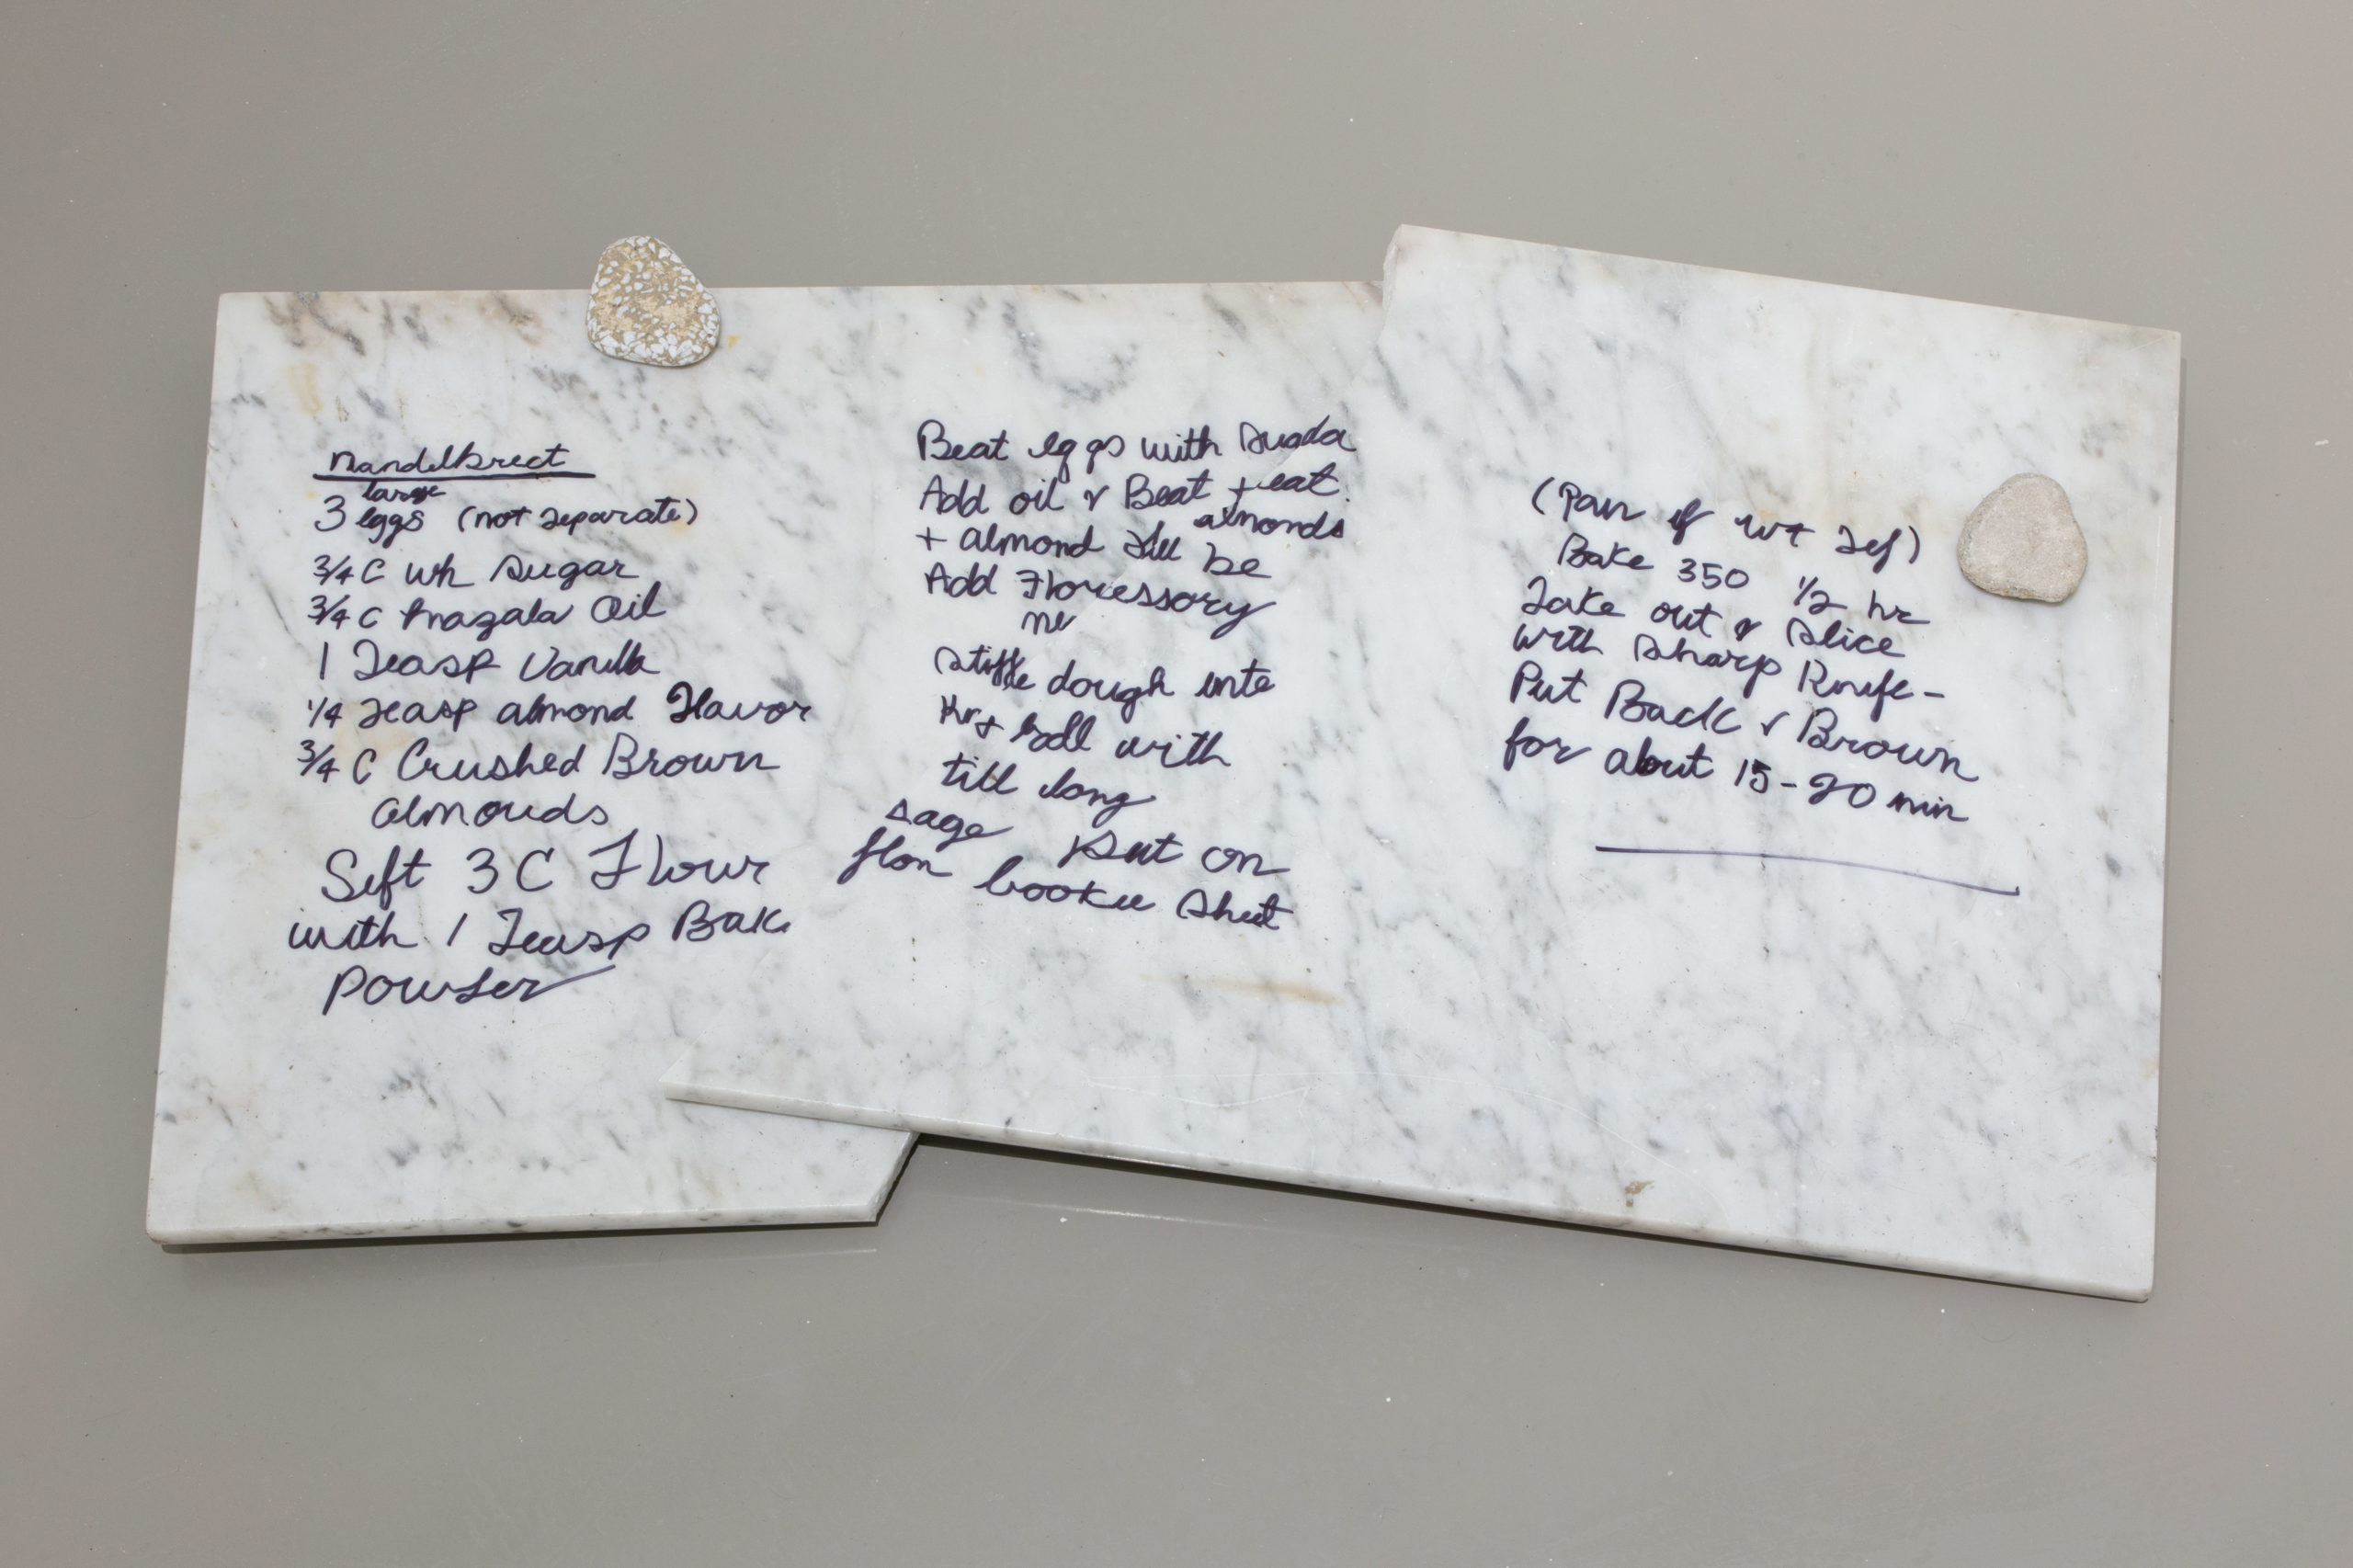 Mandelbreet
3 large eggs (not separate)
3/4 C wh Sugar
3/4 C Mazala Oil
1 Teasp Vanilla
1/4 Teasp almond Flavor
3/4 C Crushed Brown
almonds
Sift 3 C Flour
with 1 Teasp Bak
Powder
Beat eggs with
Add oil & Beat + eat.
+ almond almonds
till be
Add
ne
stiffe dough
+ Roll with
till long
sage Put on
flon cookee Sheet
(Pan if
Bake 350 1/2 hr
Take out & Slice
with Sharp Knife -
Put Back & Brown
for about 15-20 min